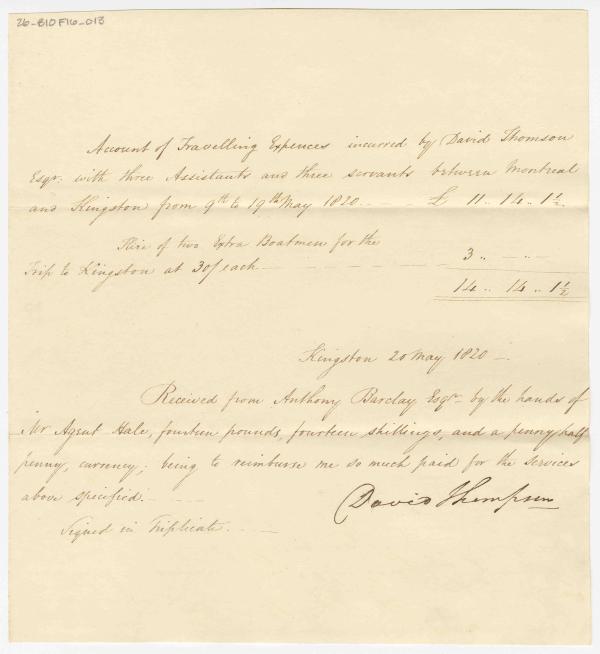 26-B10F16-013
Account of Travelling Expences incurred by David Thomson
Esqr. with three Assistants and three servants between Montreal
and Kingston from 9th to 19th May 1820 .. £ 11 .. 14 .. 1½
Hire of two Extra Boatmen for the
Trip to Kingston at 30/ each 3 .. — .. —
14 .. 14 .. 1½
Kingston 20 May 1820 —.
Received from Anthony Barclay Esqr. by the hands of
Mr Agent Hale, fourteen pounds, fourteen shillings, and a penny half
penny, currency; being to reimburse me so much paid for the services
above specified.
David Thompson
Signed in Triplicate.